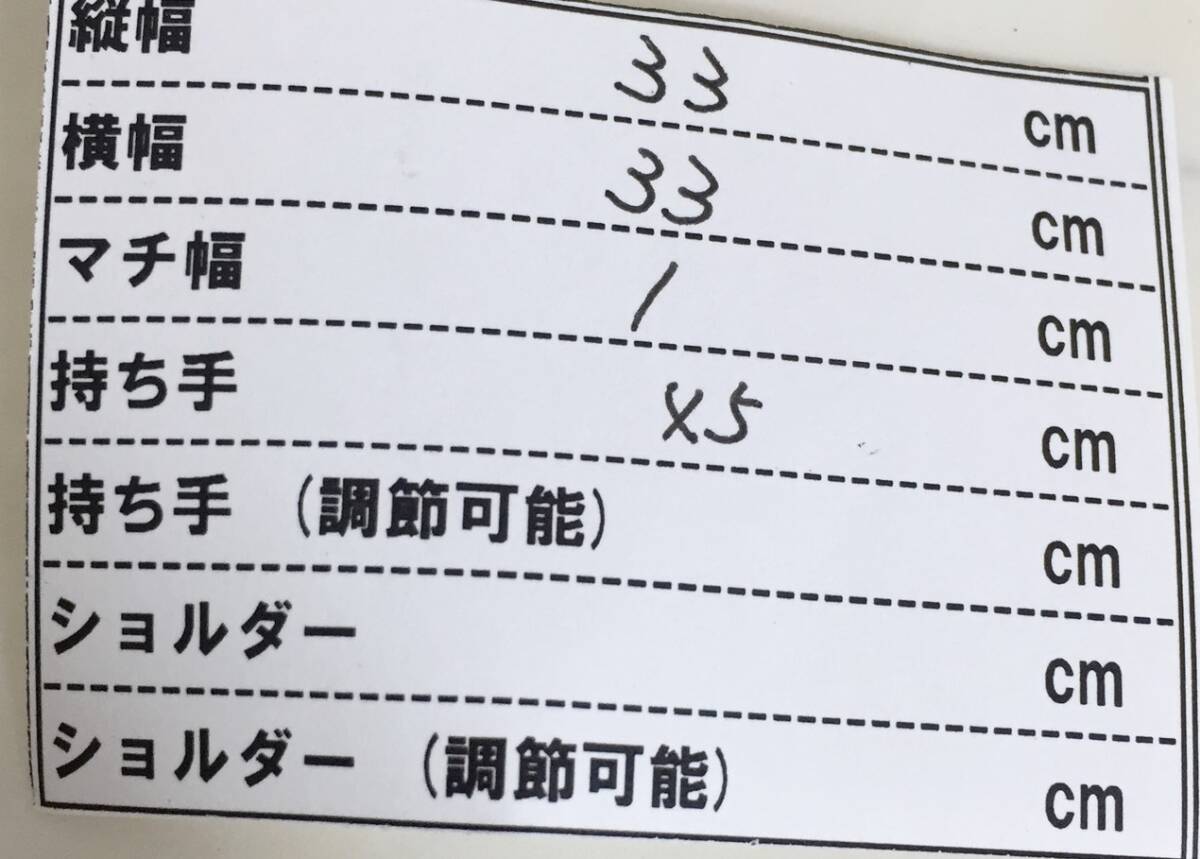 縦幅 33 cm
横幅 33 cm
マチ幅 1 cm
持ち手 45 cm
持ち手 (調節可能) cm
ショルダー cm
ショルダー (調節可能) cm